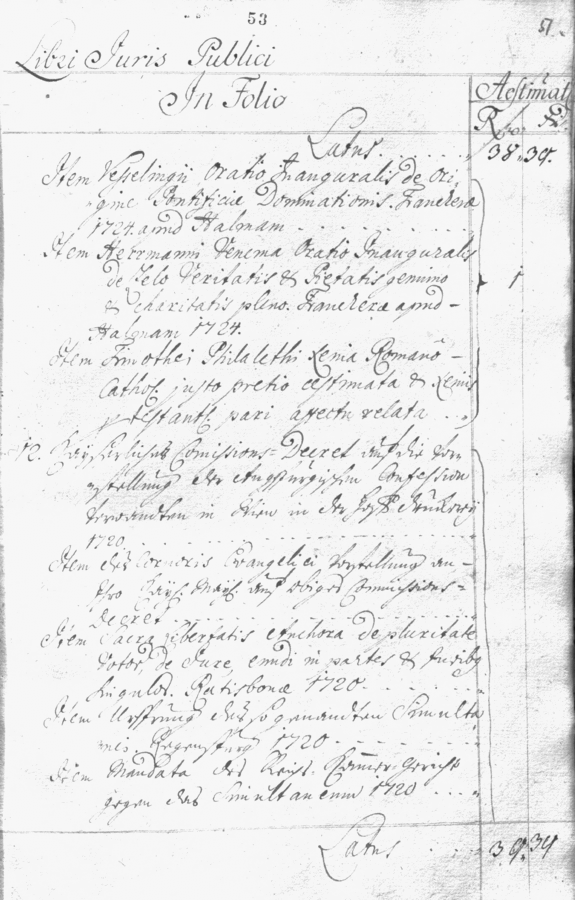 53
Libri Juris Publici
In Folio
Aestimat
Latus . . . . 38. 39.
Item Vesselingii Oratio Inauguralis de Ori,
gine Pontificiæ Dominationis. Franekeræ
1724. apud Halmam . . . .
Item Herrmanni Venema Oratio Inauguralis
de Zelo Veritatis & Pietatis genuino
& charitatis pleno. Franekeræ apud - 1
Halmam 1724.
Item Timothei Philalethi Xenia Romano -
Cathol. justo pretio æstimata & Xeniis
pari affectu relata . .
12. Kayserliches Comissions-Decret auf die Vor-
stellung der Augspurgischen Confession
Verwandten in Wien in der
1720 . . . .
Item des Corporis Evangelici Vorstellung an -
Ihro Kays. May. auf obiges Commissions-
Decret . . . .
Item Sacræ Libertatis Anchora de pluritate
Votor. de Jure, eundi in partes &
Ratisbonæ 1720. . . .
Item Ursprung des sogenandten Simulta
nei. Regenspurg 1720 . . . .
Item Mandata des Reichs-Kammer-Gericht
gegen das Simultaneum 1720 . . . .
Latus . . . . 39. 39